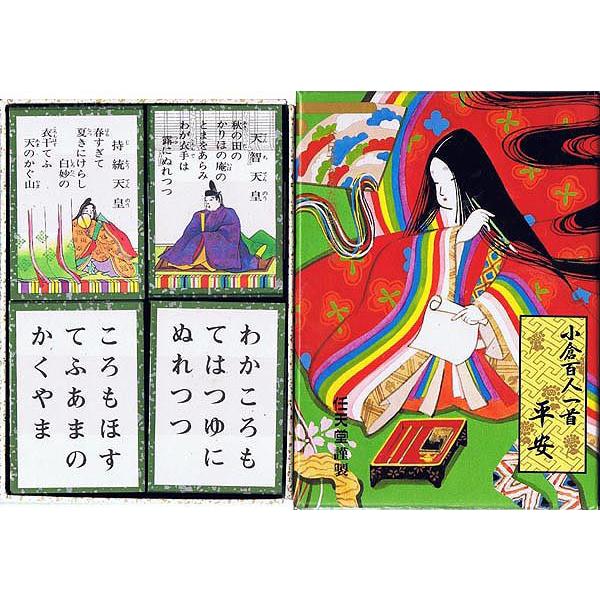 天智天皇
秋の田の
かりほの庵の
とまをあらみ
わが衣手は
露にぬれつつ
持統天皇
春すぎて
夏きにけらし
白妙の
衣干てふ
天のかぐ山
わかころも
てはつゆに
ぬれつつ
ころもほす
てふあまの
かくやま
小倉百人一首
平安
任天堂謹製